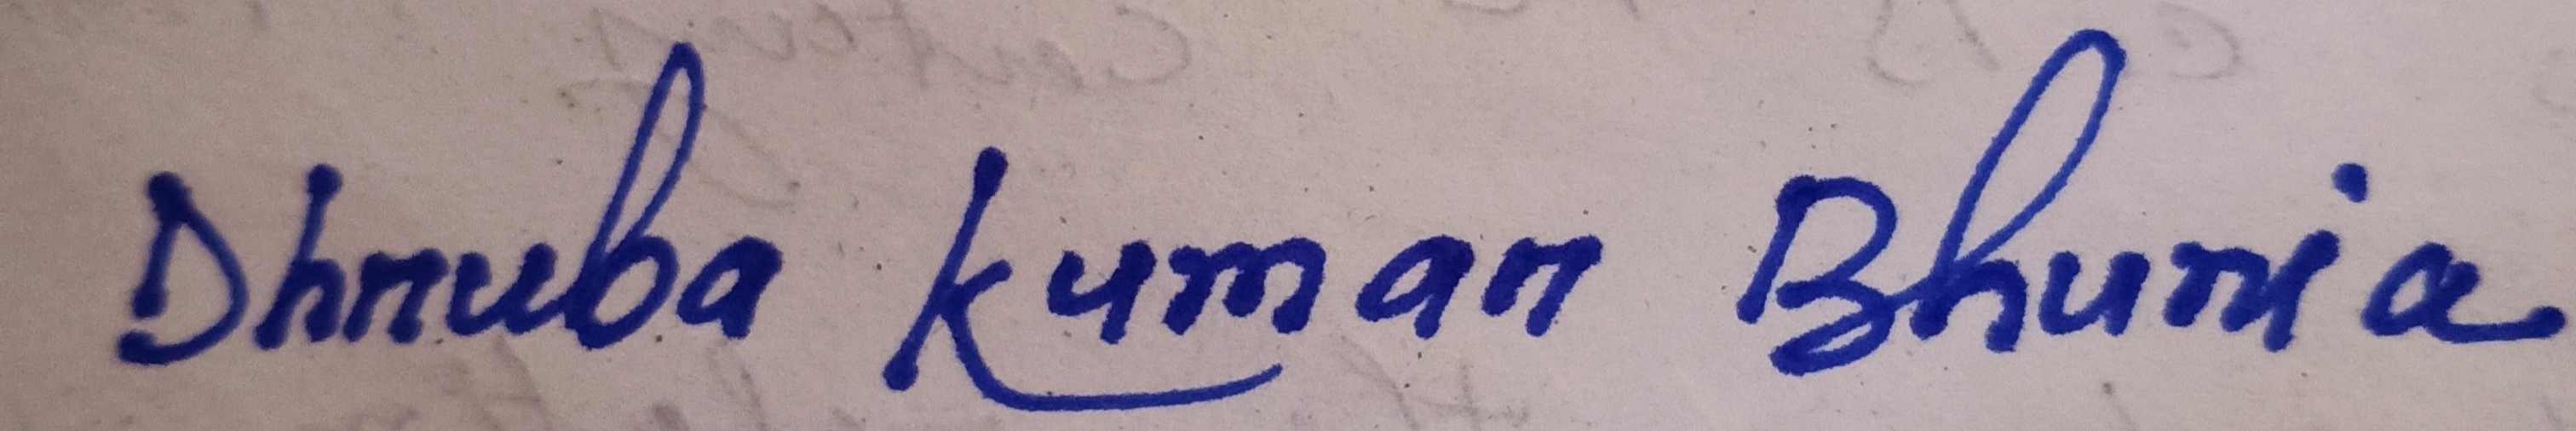 Dhruba Kumar Bhunia